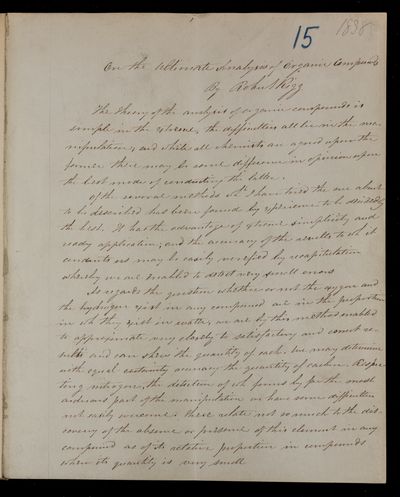 15 1838
On the Ultimate Analysis of Organic Compounds
By Robert Rigg
The theory of the analysis of organic compounds is
simple in the extreme, the difficulties all lie in the ma-
nipulation; and whilst all chemists are agreed upon the
former there may be some difference in opinion upon
the best mode of conducting the latter.
Of the several methods wh I have tried the one about
to be described has been found by experience to be decidedly
the best. It has the advantage of extreme simplicity and
ready application; and the accuracy of the results to wh it
conducts us may be easily verified by recapitulation
whereby we are enabled to detect very small errors
As regards the question whether or not the oxygen and
the hydrogen exist in any compound are in the proportion
in wh they exist in water, we are by this method enabled
to approximate very closely to satisfactory and correct re-
sults and can shew the quantity of each. We may determine
with equal certainty accuracy the quantity of carbon. Respec-
ting nitrogen, the detection of wh forms by far the most
arduous part of the manipulation we have some difficulties
not easily overcome: these relate not so much to the dis-
covery of the absence or presence of this element in any
compound as of its relative proportion in compounds
where its quantity is very small